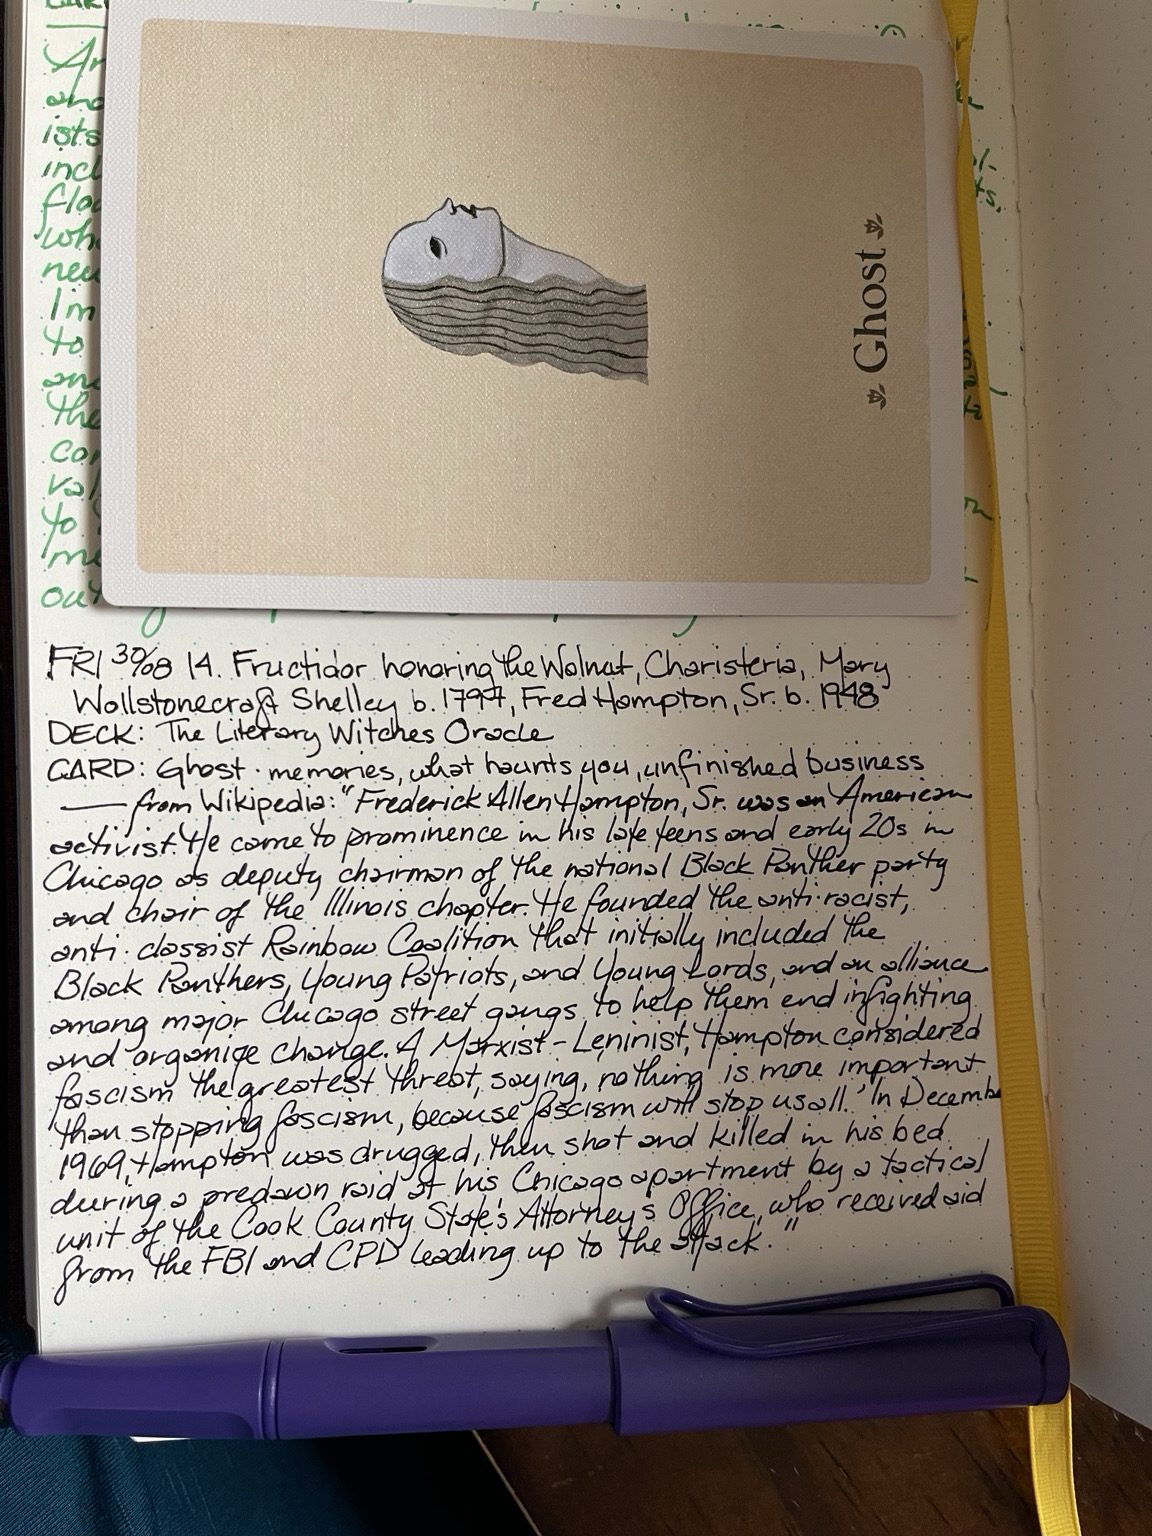 Ar
and
ists
incl
flo
wh
new
Im
to
and
the
con
val
to
me
out
Ghost
FRI 30/08 14. Fructidor honoring the Walnut, Charisteria, Mary
Wollstonecraft Shelley b. 1797, Fred Hampton, Sr. b. 1948
DECK: The Literary Witches Oracle
CARD: Ghost · memories, what haunts you, unfinished business
— from Wikipedia: "Frederick Allen Hampton, Sr. was an American
activist. He came to prominence in his late teens and early 20s in
Chicago as deputy chairman of the national Black Panther party
and chair of the Illinois chapter. He founded the anti-racist,
anti-classist Rainbow Coalition that initially included the
Black Panthers, Young Patriots, and Young Lords, and an alliance
among major Chicago street gangs to help them end infighting
and organize change. A Marxist-Leninist, Hampton considered
fascism the greatest threat, saying, 'nothing is more important
than stopping fascism, because fascism will stop us all.' In Decembe
1969, Hampton was drugged, then shot and killed in his bed
during a predawn raid at his Chicago apartment by a tactical
unit of the Cook County State's Attorney's Office, who received aid
from the FBI and CPD leading up to the attack."